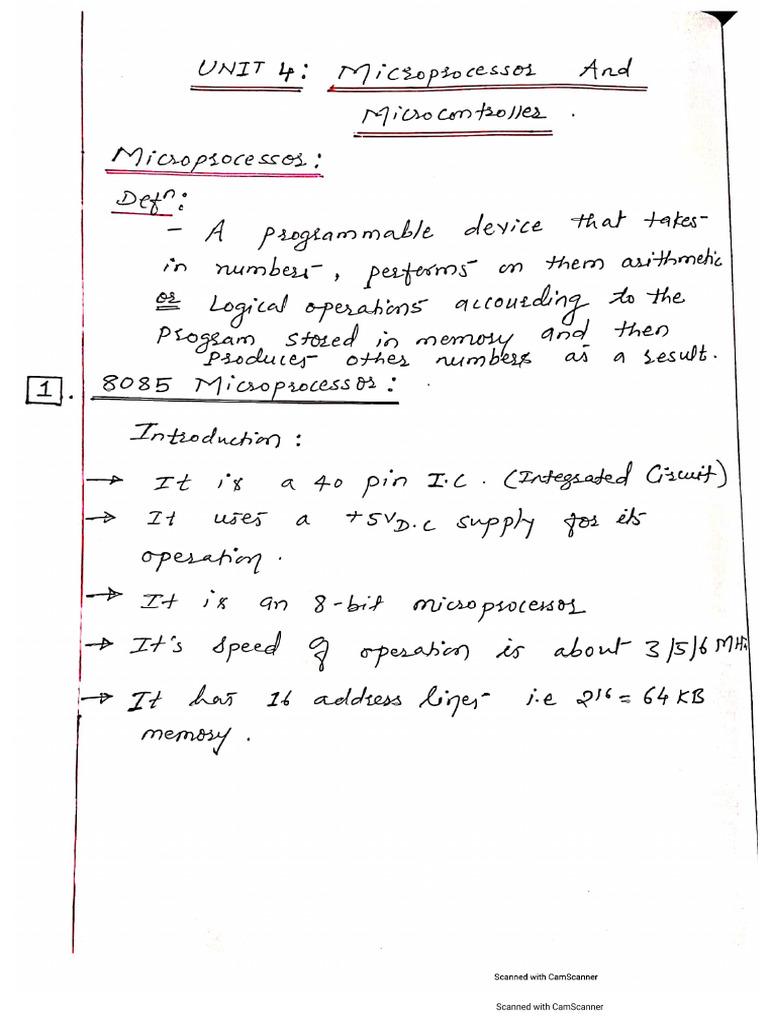 UNIT 4: Microprocessor And
Microcontroller.
Microprocessor:
Defn:
- A programmable device that takes
in numbers, performs on them arithmetic
or Logical operations accourding to the
program stored in memory and then
produces other numbers as a result.
1. 8085 Microprocessor:
Introduction:
→ It is a 40 pin I.C. (Integrated Circuit)
→ It uses a +5V D.C supply for its
operation.
→ It is an 8-bit microprocessor
→ It's speed of operation is about 3/5/6 MHz
→ It has 16 address lines i.e 2^16 = 64 KB
memory.
Scanned with CamScanner
Scanned with CamScanner